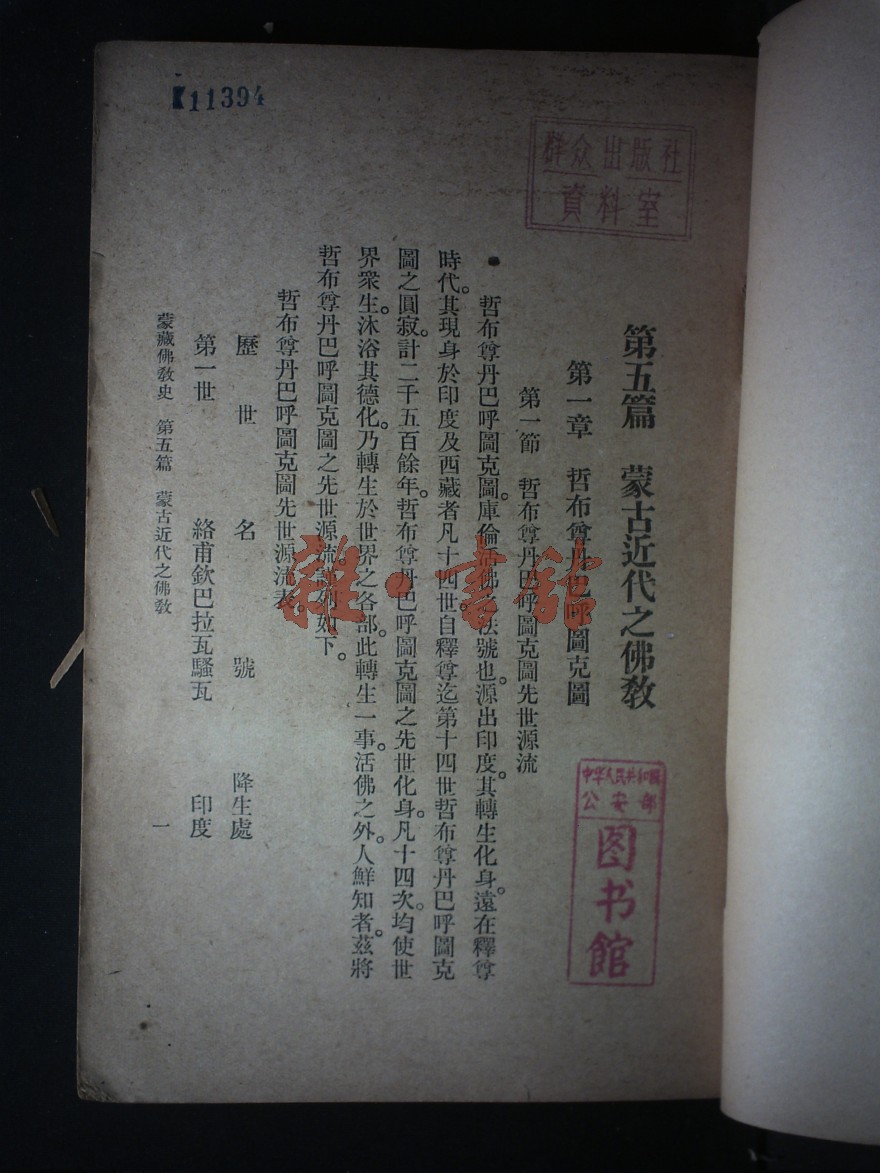 K11394
群众出版社
資料室
第五篇　蒙古近代之佛教
第一章　哲布尊丹巴呼圖克圖
第一節　哲布尊丹巴呼圖克圖先世源流
哲布尊丹巴呼圖克圖。庫倫活佛之法號也。源出印度。其轉生化身。遠在釋尊
時代。其現身於印度及西藏者凡十四世。自釋尊迄第十四世哲布尊丹巴呼圖克
圖之圓寂。計二千五百餘年。哲布尊丹巴呼圖克圖之先世化身。凡十四次。均使世
界衆生。沐浴其德化。乃轉生於世界之各部。此轉生一事。活佛之外。人鮮知者。茲將
哲布尊丹巴呼圖克圖之先世源流。說列如下。
哲布尊丹巴呼圖克圖先世源流表。
歷世　名號　降生處
第一世　絡甫欽巴拉瓦騷瓦　印度
蒙藏佛教史　第五篇　蒙古近代之佛教　一
中华人民共和國
公安部
图书館
雜·書館